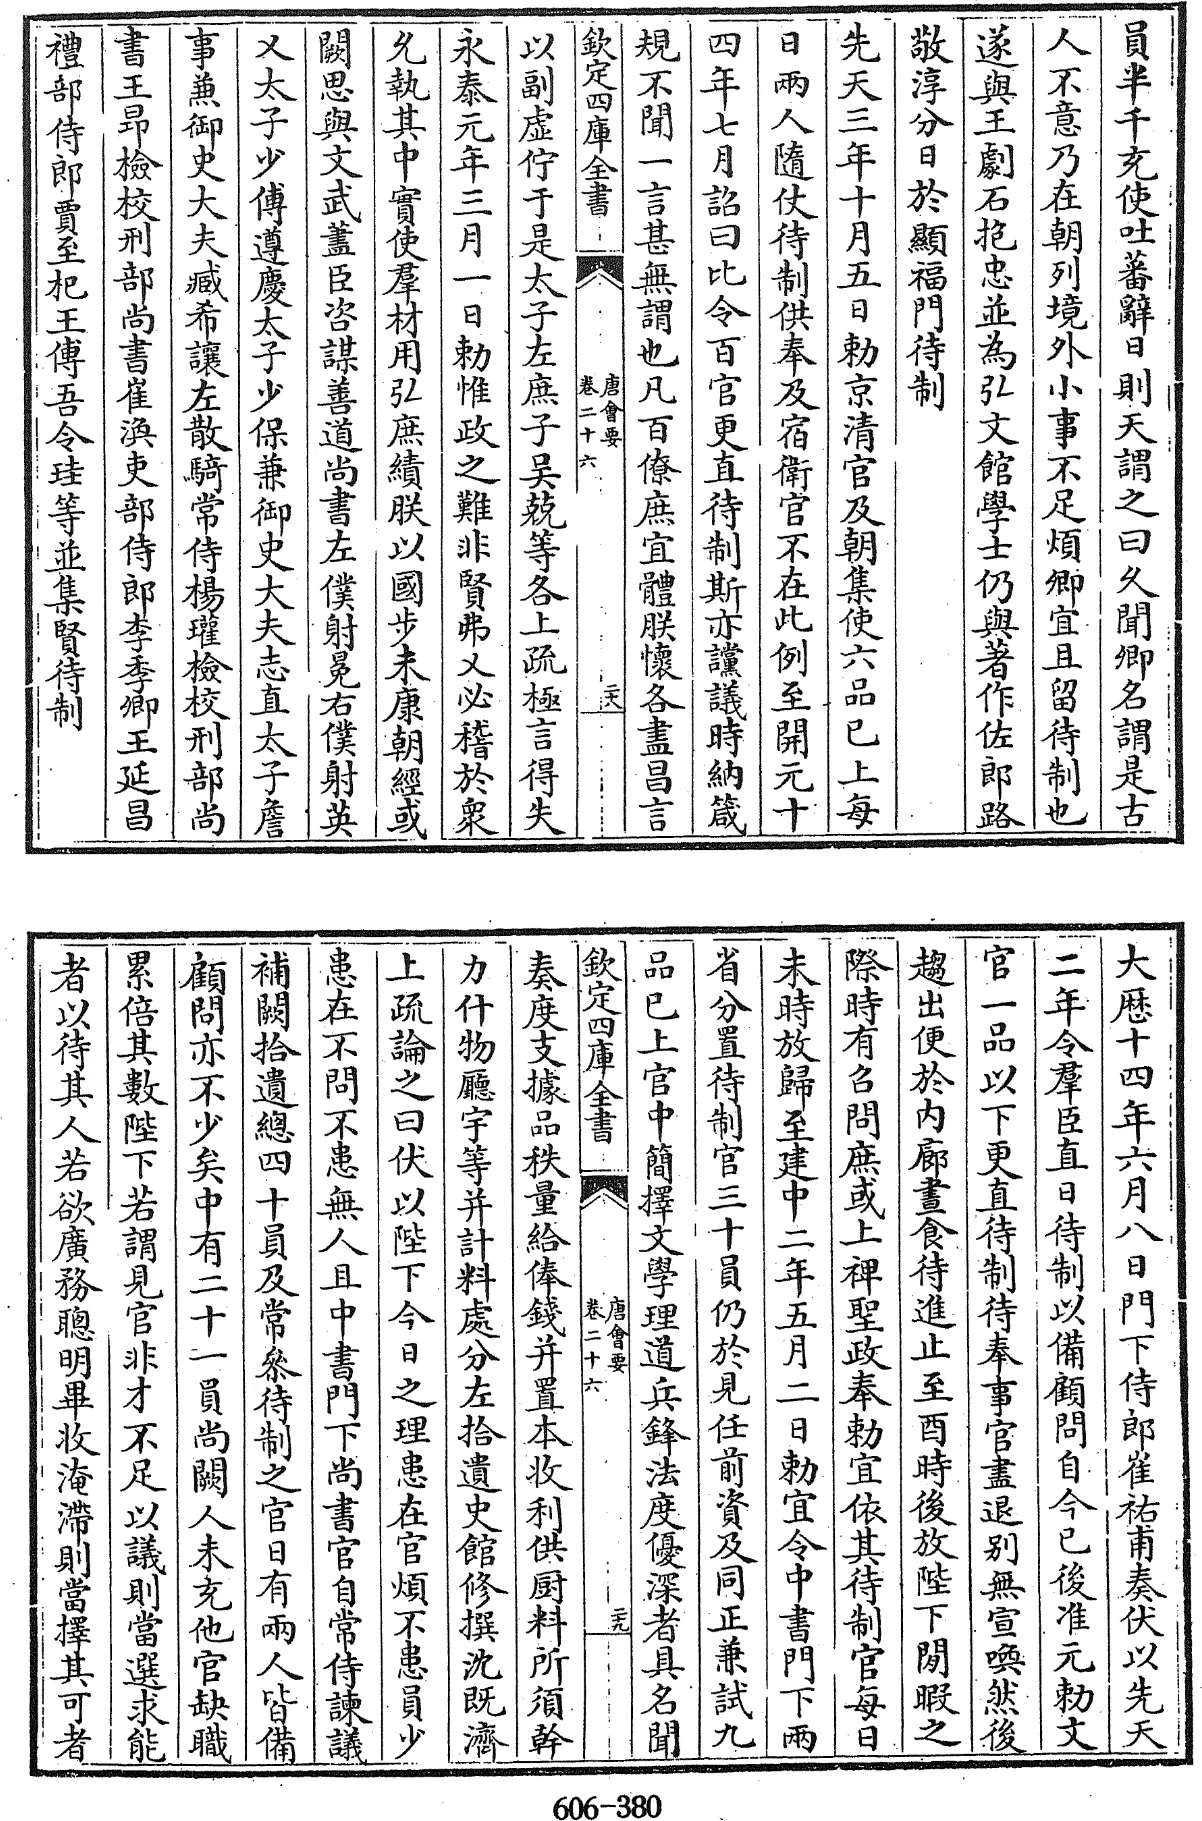 員半千充使吐蕃辭日則天謂之曰久聞卿名謂是古
人不意乃在朝列境外小事不足煩卿宜且留待制也
遂與王劇石抱忠並為弘文館學士仍與著作佐郎路
敬淳分日於顯福門待制
先天三年十月五日勅京清官及朝集使六品已上每
日兩人隨仗待制供奉及宿衛官不在此例至開元十
四年七月詔曰比令百官更直待制斯亦讜議時納箴
規不聞一言甚無謂也凡百僚庶宜體朕懷各盡昌言
欽定四庫全書
唐會要
卷二十六
二十八
以副虛佇于是太子左庶子吴兢等各上疏極言得失
永泰元年三月一日勅惟政之難非賢弗乂必稽於衆
允執其中實使羣材用弘庶績朕以國步未康朝經或
闕思與文武藎臣咨謀善道尚書左僕射冕右僕射英
乂太子少傅遵慶太子少保兼御史大夫志直太子詹
事兼御史大夫臧希讓左散騎常侍楊瓘檢校刑部尚
書王昂檢校刑部尚書崔渙吏部侍郎李季卿王延昌
禮部侍郎賈至杞王傅吾令珪等並集賢待制
大厯十四年六月八日門下侍郎崔祐甫奏伏以先天
二年令羣臣直日待制以備顧問自今已後准元勅文
官一品以下更直待制待奉事官盡退别無宣喚然後
趨出便於内廊晝食待進止至酉時後放陛下閒暇之
際時有召問庶或上禆聖政奉勅宜依其待制官每日
未時放歸至建中二年五月二日勅宜令中書門下兩
省分置待制官三十員仍於見任前資及同正兼試九
品已上官中簡擇文學理道兵鋒法度優深者具名聞
欽定四庫全書
唐會要
卷二十六
二十九
奏度支據品秩量給俸錢并置本收利供厨料所須幹
力什物廳宇等并計料處分左拾遺史館修撰沈既濟
上疏論之曰伏以陛下今日之理患在官煩不患員少
患在不問不患無人且中書門下尚書官自常侍諫議
補闕拾遺總四十員及常叅待制之官日有兩人皆備
顧問亦不少矣中有二十一員尚闕人未充他官缺職
累倍其數陛下若謂見官非才不足以議則當選求能
者以待其人若欲廣務聰明畢收淹滯則當擇其可者
606-380